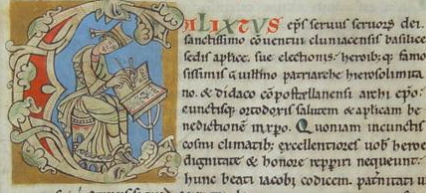 CALIXTVS ep̄s seruus seruoꝝ dei.
sanctissimo cōuentui cluniacensis basilice
sedis aplice. sue electionis. heroib; q; famo
sissimis Guillmo patriarche hierosolimita
no. & didaco cōpostellanensi archi ep̄o.
cunctisq; ortodoxis salutem & aplicam be
nedictionē in xp̄o. Quoniam in cunctis
cosmi climatib; excellentiores uob̄ heroe
dignitate & honore reppiri nequeunt.
hunc beati iacobi codicem. paternitati u